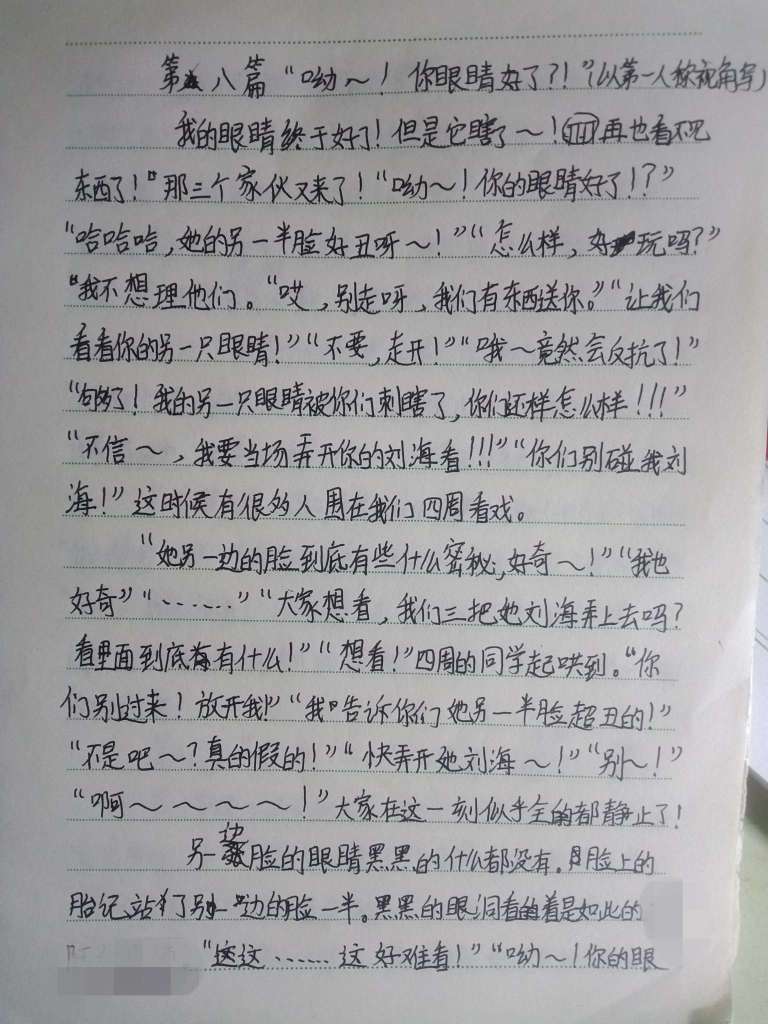 第八篇“呦～！你眼睛好了?！”（以第一人称视角写）
我的眼睛终于好了！但是它瞎了～！再也看不见
东西了！”那三个家伙又来了！“呦～！你的眼睛好了！？”
“哈哈哈，她的另一半脸好丑呀～！”“怎么样，好玩吗？”
“我不想理他们。“哎，别走呀，我们有东西送你。”“让我们
看看你的另一只眼睛！”“不要，走开！”“哦～竟然会反抗了！”
“够了！我的另一只眼睛被你们刺瞎了，你们还样怎么样！！！”
“不信～，我要当场弄开你的刘海看！！！”“你们别碰我刘
海！”这时候有很多人围在我们四周看戏。
“她另一边的脸到底有些什么密秘，好奇～！”“我也
好奇”“……”“大家想看，我们三把她刘海弄上去吗？
看里面到底有什么！”“想看！”四周的同学起哄到。“你
们别过来！放开我！”“我告诉你们她另一半脸超丑的！”
“不是吧～？真的假的！”“快弄开她刘海～！”“别～！”
“啊～～～～！”大家在这一刻似乎全都静止了！
另一边脸的眼睛黑黑的什么都没有。脸上的
胎记站了另一边的脸一半。黑黑的眼洞看着是如此的
“这这……这好难看！”“呦～！你的眼